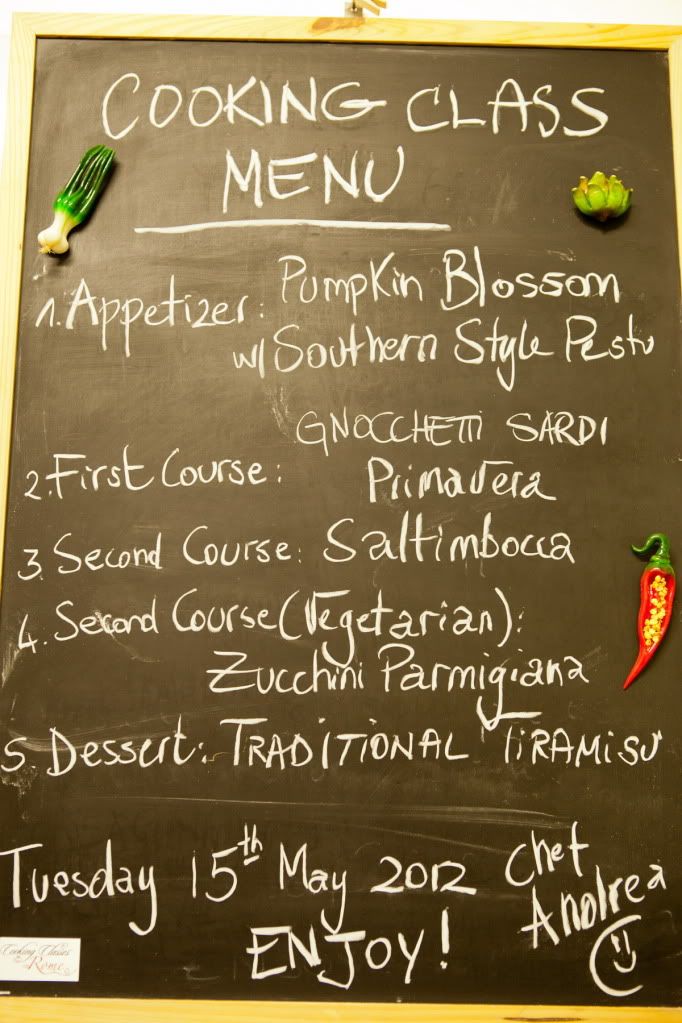 COOKING CLASS
MENU
1. Appetizer: Pumpkin Blossom
w/ Southern Style Pesto
GNOCCHETTI SARDI
2. First Course: Primavera
3. Second Course: Saltimbocca
4. Second Course (Vegetarian):
Zucchini Parmigiana
5. Dessert: TRADITIONAL TIRAMISU'
Tuesday 15th May 2012 Chef
Andrea
ENJOY!
Cooking Classes
Rome